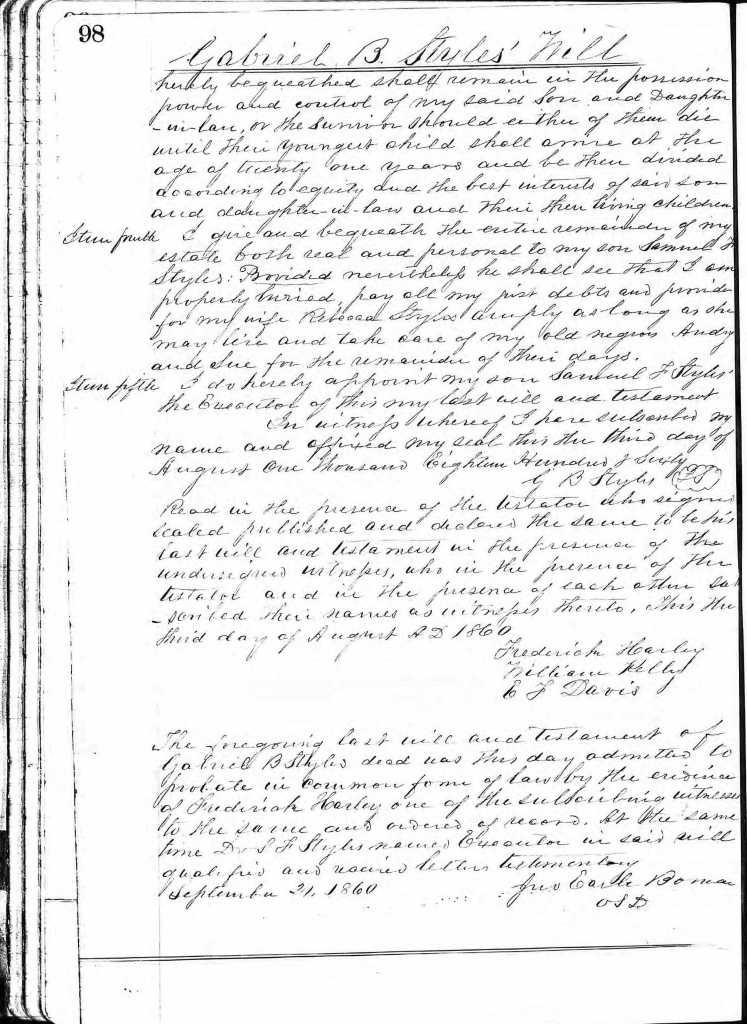 98
Gabriel B. Styles' Will
hereby bequeathed shall remain in the possession
power and control of my said Son and Daughter
-in-law, or the Survivor should either of them die
until their youngest child shall arrive at the
age of twenty one years and be then divided
according to equity and the best interests of said son
and daughter-in-law and their then living children.
Item fourth I give and bequeath the entire remainder of my
estate both real and personal to my son Samuel F
Styles: Provided nevertheless he shall see that I am
properly buried, pay all my just debts and provide
for my wife Rebecca Styles amply as long as she
may live and take care of my old negros Andy
and Sue for the remainder of their days.
Item fifth I do hereby appoint my son Samuel F Styles'
the Executor of this my last will and testament
In witness whereof I have subscribed my
name and affixed my seal this the third day of
August One Thousand Eighteen Hundred & Sixty
G B Styles
Read in the presence of the testator who signed
sealed published and declared the same to be his
last will and testament in the presence of the
undersigned witnesses, who in the presence of the
testator and in the presence of each other sub
-scribed their names as witnesses thereto, This the
third day of August AD 1860
Frederick Harley
William Kelly
E F Davis
The foregoing last will and testament of
Gabriel B Styles dead was this day admitted to
probate in common form of law by the evidence
of Frederick Harley one of the subscribing witnesses
to the same and ordered of record. At the same
time Dr S F Styles named Executor in said will
qualified and received letters testamentary
September 21, 1860 Jno Earle Bomar
OSD